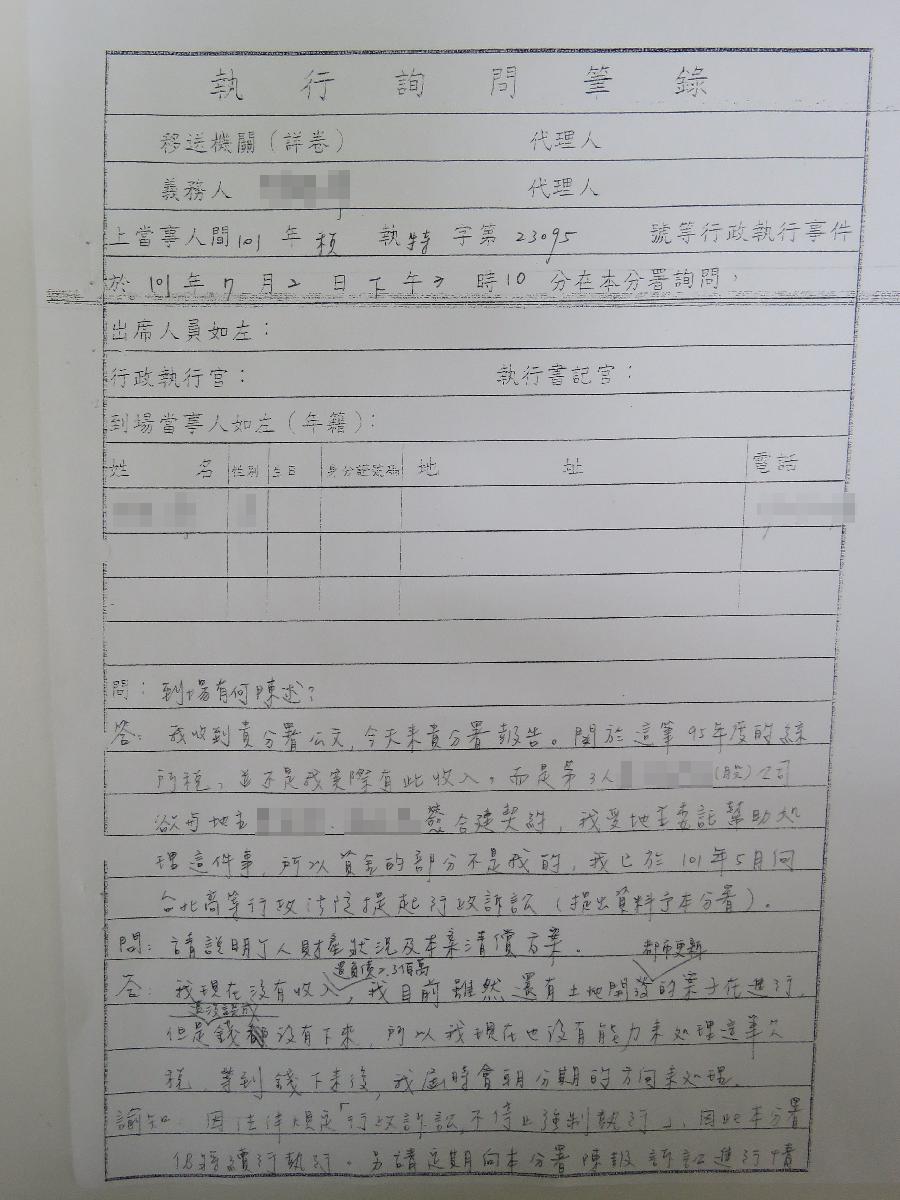 執行詢問筆錄
移送機關(詳卷) 代理人
義務人 代理人
上當事人間101年 執特字第23095 號等行政執行事件
於101年7月2日下午3時10分在本分署詢問,
出席人員如左:
行政執行官: 執行書記官:
到場當事人如左(年籍):
姓名 性別 生日 身分證號碼 地址 電話
問:到場有何陳述?
答:我收到貴分署公文,今天來貴分署報告。關於這筆95年度的綜
所稅,並不是我實際有此收入,而是第3人 (股)公司
欲與地主 、 簽合建契約,我受地主委託幫助處
理這件事,所以資金的部分不是我的,我已於101年5月向
台北高等行政法院提起行政訴訟(提出資料予本分署)。
問:請說明個人財產狀況及本案清償方案。
都市更新
還負債2、3佰萬
答:我現在沒有收入,我目前雖然還有土地開發的案子在進行,
還沒談成
但是錢都沒有下來,所以我現在也沒有能力來處理這筆欠
稅,等到錢下來後,我屆時會朝分期的方向來處理。
諭知:因法律規定「行政訴訟不停止強制執行」,因此本分署
仍將續行執行。另請定期向本分署陳報訴訟進行情